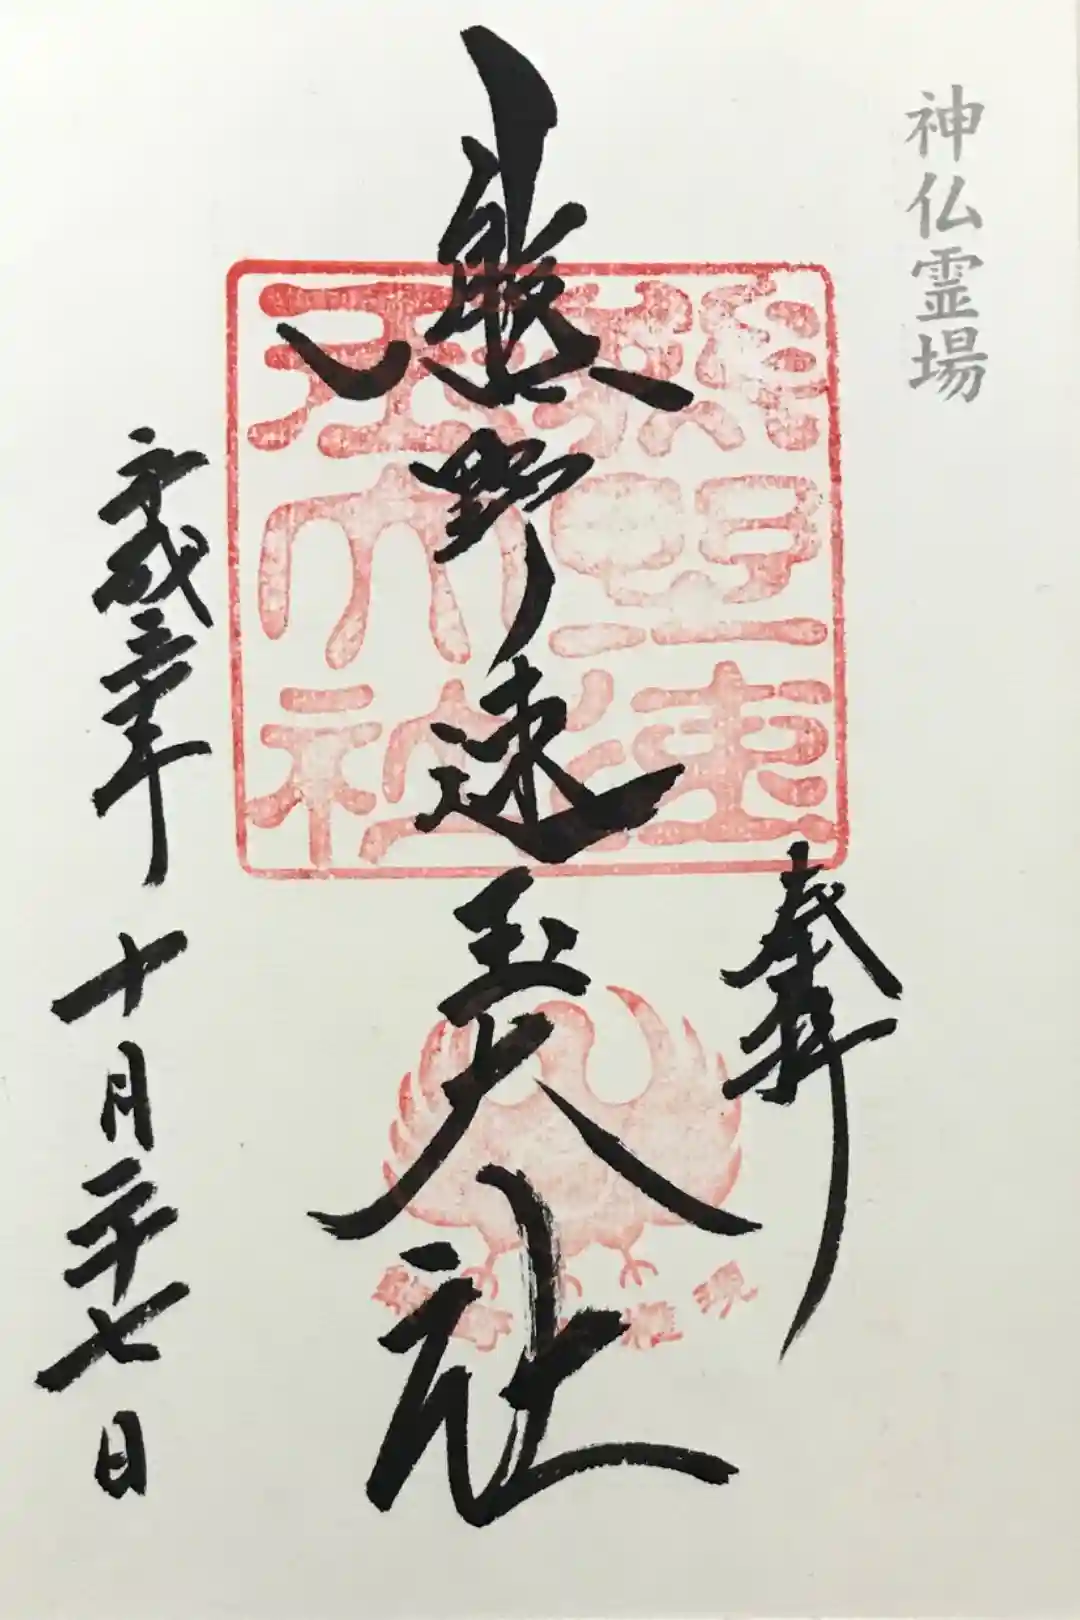 神仏霊場
奉拝
熊野速玉大社
熊野速
玉大社
熊野権現
平成三十年十月二十七日